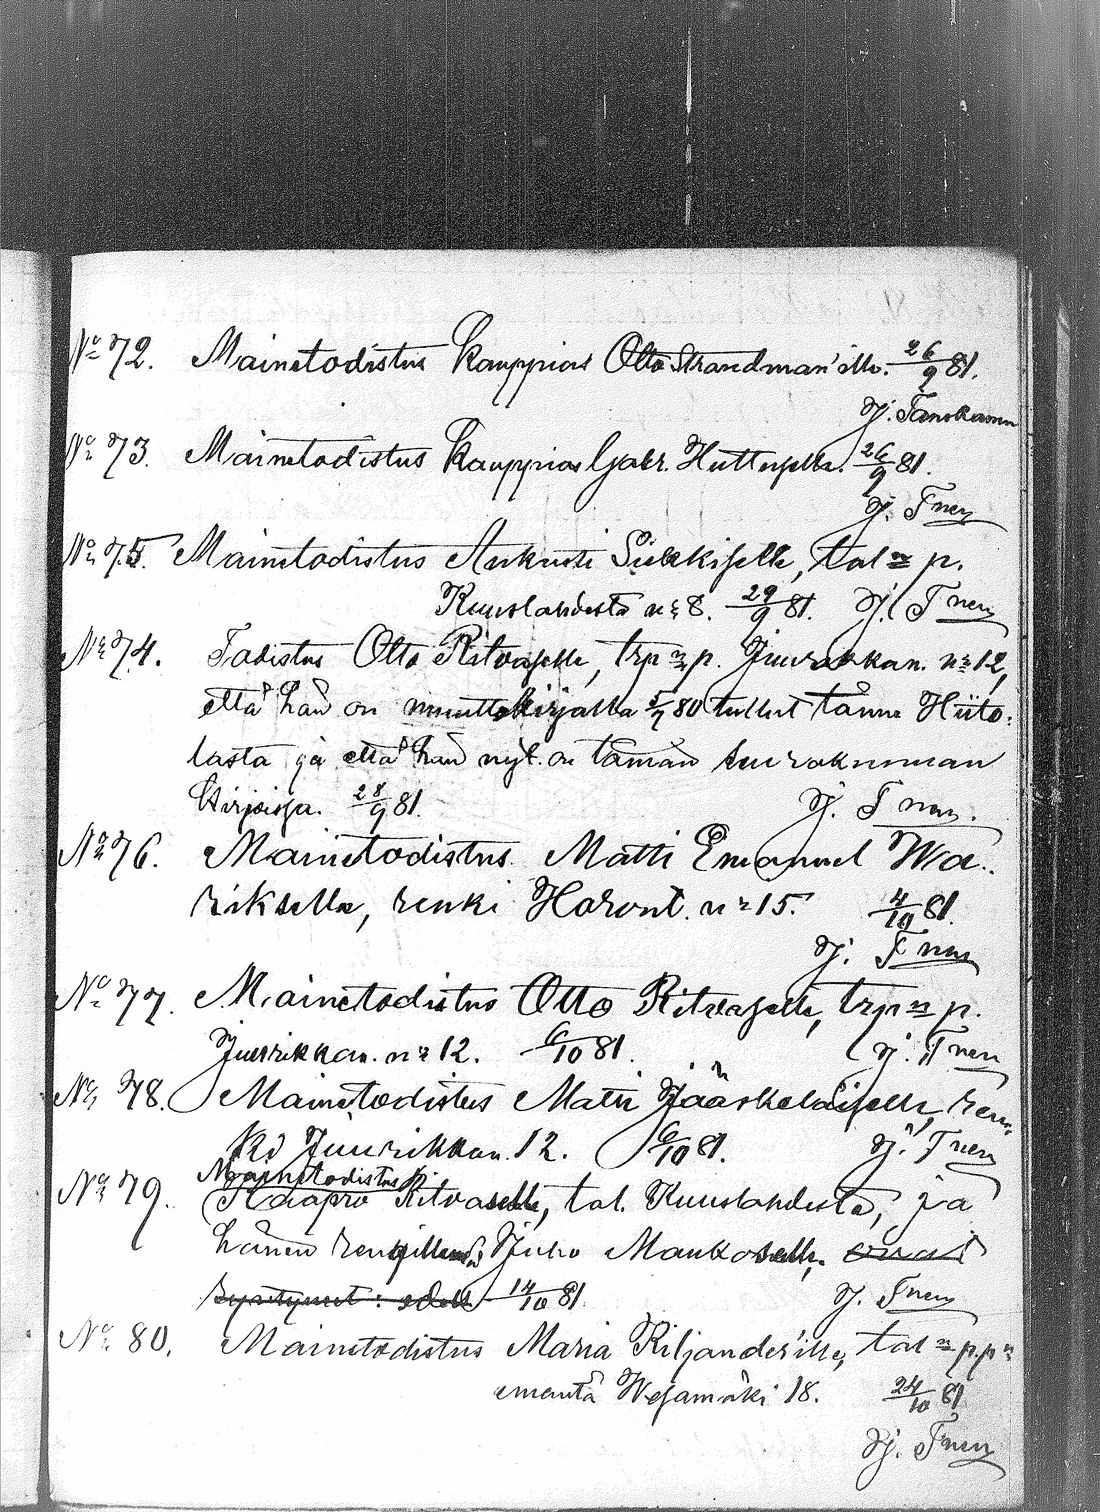 No 72. Mainetodistus kauppias Otto Strandman'ille. 26/9 81.
Hj. Tanskanen
No 73. Mainetodistus kauppias Gabr. Huttuselle. 26/9 81.
Hj. T nen
No 75. Mainetodistus Aukusti Sirkkiselle, tal n p.
Kuuslahdesta nr 8. 29/9 81. Hj. T nen
No 74. Todistus Otto Ritvaselle, trp n p. Juurikkan. nr 12,
että hän on muuttokirjalla 5/7 80 tullut tänne Hiito-
lasta ja että hän nyt on tämän seurakunnan
kirjoissa. 28/9 81. Hj. T nen.
No 76. Mainetodistus Matti Emanuel Wa-
rikselle, renki Haront. nr 15. 4/10 81.
Hj. T nen
No 77. Mainetodistus Otto Ritvaselle, trp n p.
Juurikkan. nr 12. 6/10 81. Hj. T nen
No 78. Mainetodistus Matti Jääskeläiselle, ren-
ki Juurikkan. 12. 6/10 81. Hj. T nen
Mainetodistus
No 79. Kaapro Ritvaselle, tal. Kuuslahdesta, ja
hänen rengillensä Juho Maukoselle, ovat
syntyneet: edell. 14/10 81. Hj. T nen
No 80. Mainetodistus Maria Kiljander'ille, tal n p.p n
emäntä Wesamäki 18. 24/10 81
Hj. T nen